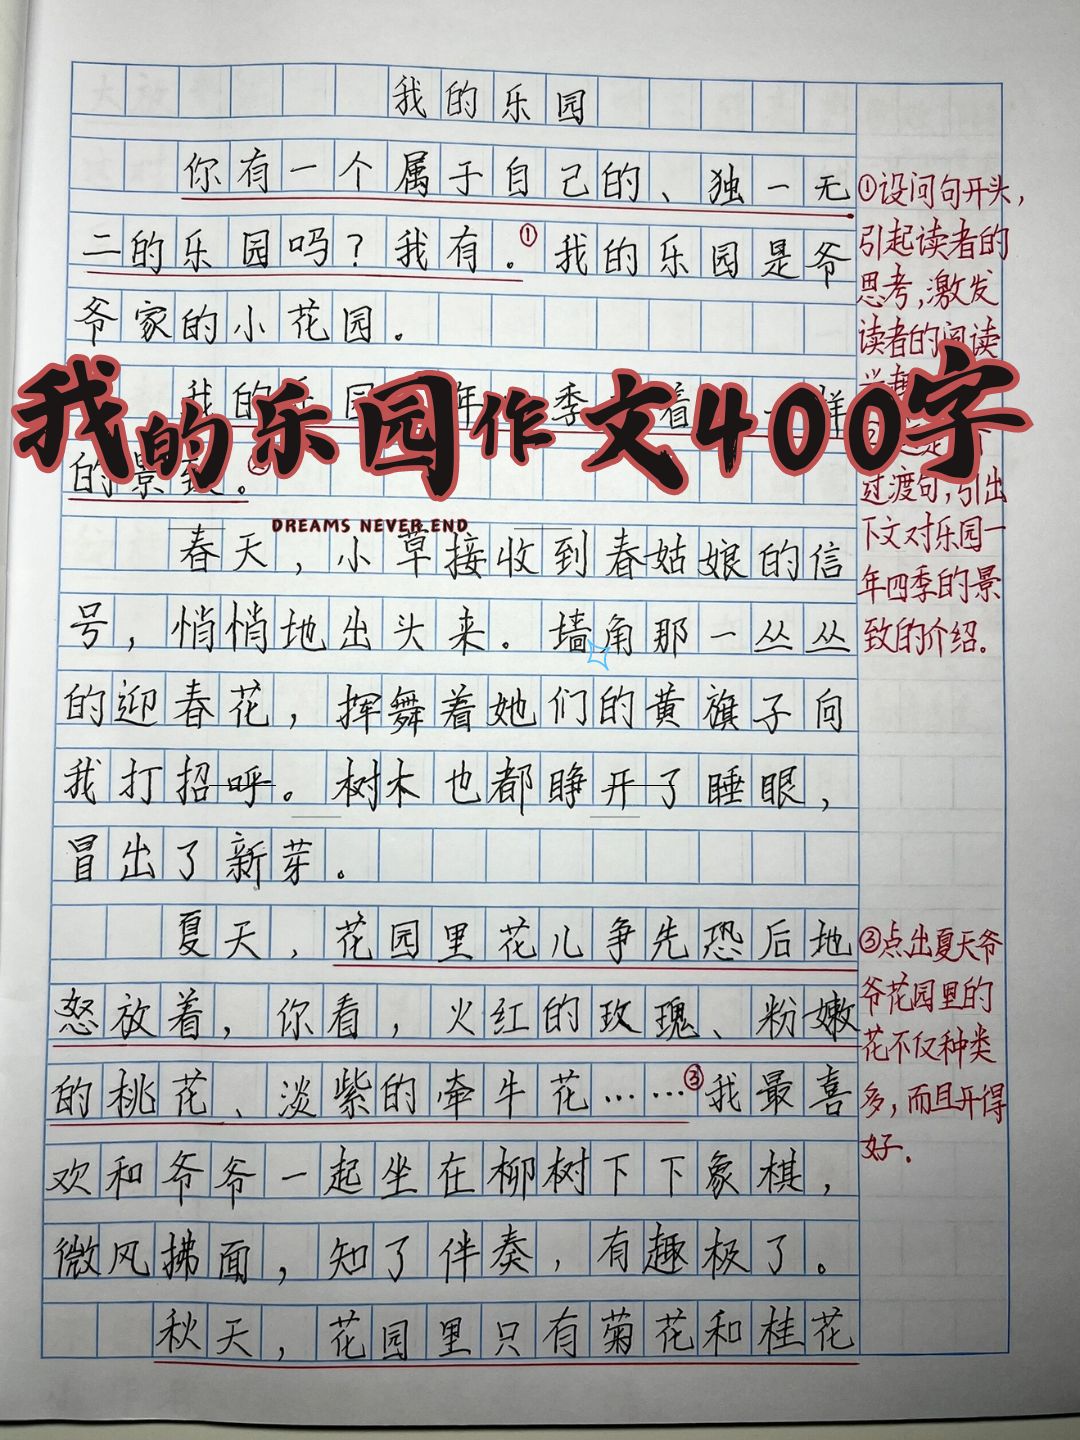 我的乐园
你有一个属于自己的、独一无
二的乐园吗？我有。①我的乐园是爷
爷家的小花园。
我的乐园年季着一样
的景致。②
春天，小草接收到春姑娘的信
号，悄悄地出头来。墙角那一丛丛
的迎春花，挥舞着她们的黄旗子向
我打招呼。树木也都睁开了睡眼，
冒出了新芽。
夏天，花园里花儿争先恐后地
怒放着，你看，火红的玫瑰、粉嫩
的桃花、淡紫的牵牛花……③我最喜
欢和爷爷一起坐在柳树下下象棋，
微风拂面，知了伴奏，有趣极了。
秋天，花园里只有菊花和桂花
①设问句开头，
引起读者的
思考，激发
读者的阅读
过渡句，引出
下文对乐园一
年四季的景
致的介绍.
③点出夏天爷
爷花园里的
花不仅种类
多，而且开得
好.
我的乐园作文400字
DREAMS NEVER END